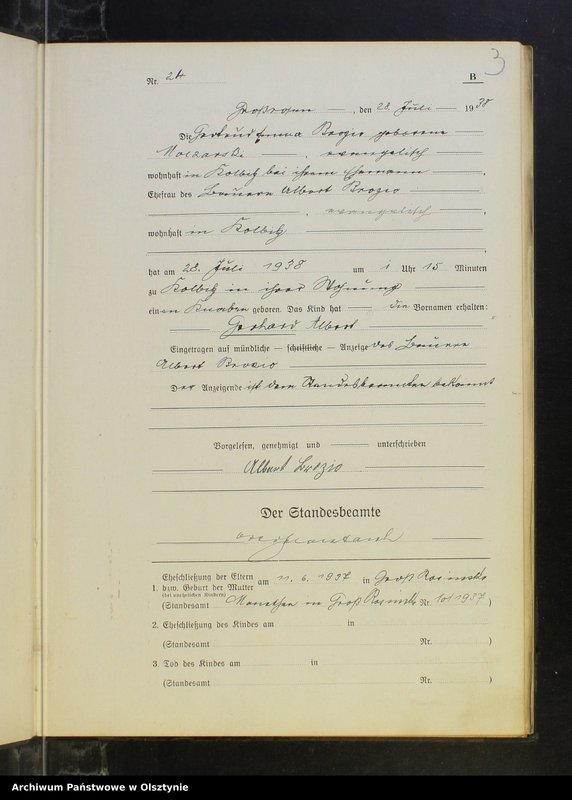 3
Nr. 24 B
, den 28. Juli 1938
Die Gertrud Emma Brozio geborene
, evangelisch
wohnhaft in Kolbitz bei ihrem Ehemann,
Ehefrau des Bauern Albert Brozio
, evangelisch,
wohnhaft in Kolbitz
,
hat am 28. Juli 1938 um 1 Uhr 15 Minuten
zu Kolbitz in ihrer Wohnung
einen Knaben geboren. Das Kind hat die Vornamen erhalten:
Gerhard Albert
Eingetragen auf mündliche — schriftliche — Anzeige des Bauern
Albert Brozio
Der Anzeigende ist dem Standesbeamten bekannt
Vorgelesen, genehmigt und unterschrieben
Albert Brozio
Der Standesbeamte
Eheschließung der Eltern
1. bzw. Geburt der Mutter am 11. 6. 1937 in Groß Rosinsko
(bei unehelichen Kindern)
(Standesamt in Groß Rosinsko Nr. 10/1937)
2. Eheschließung des Kindes am in
(Standesamt Nr. )
3. Tod des Kindes am in
(Standesamt Nr. )
Archiwum Państwowe w Olsztynie